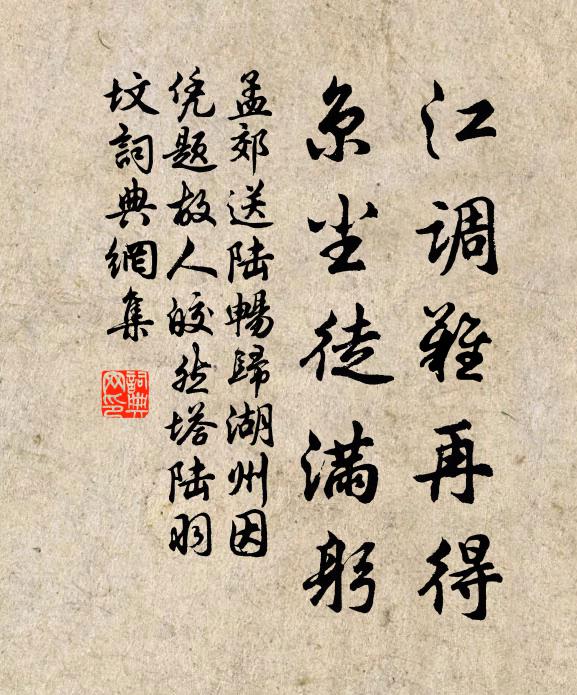 江调难再得
京尘徒满躬
孟郊送陆畅归湖州因
凭题故人皎然塔陆羽
坟詞典網集
詞典
网印